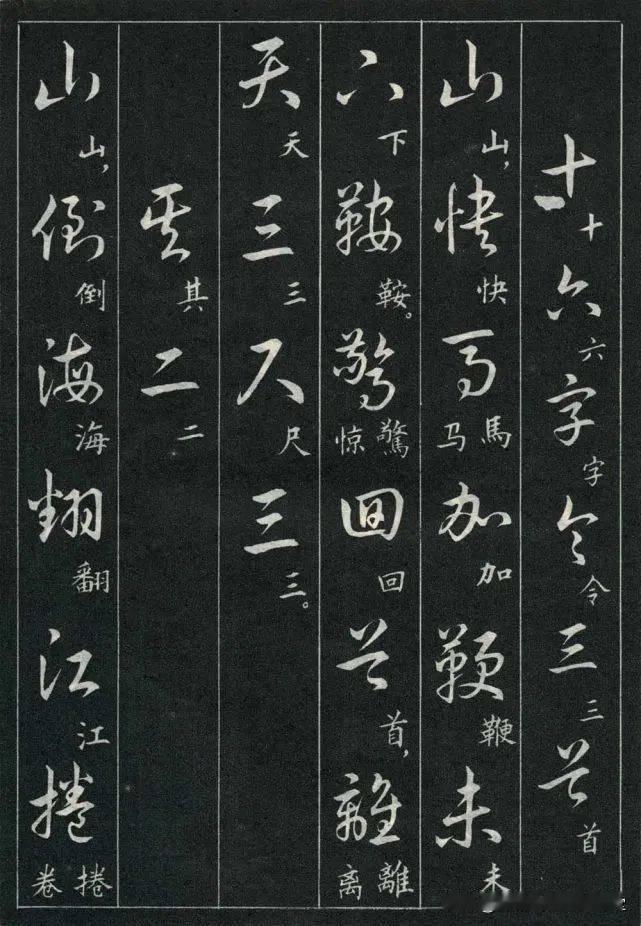 十六字令三首
十六字令三首
山快馬加鞭未
山，快馬马加鞭未
下鞍驚回首離
下鞍。驚惊回首，離离
天三尺三
天三尺三。
其二
其二
山倒海翻江捲
山，倒海翻江捲卷